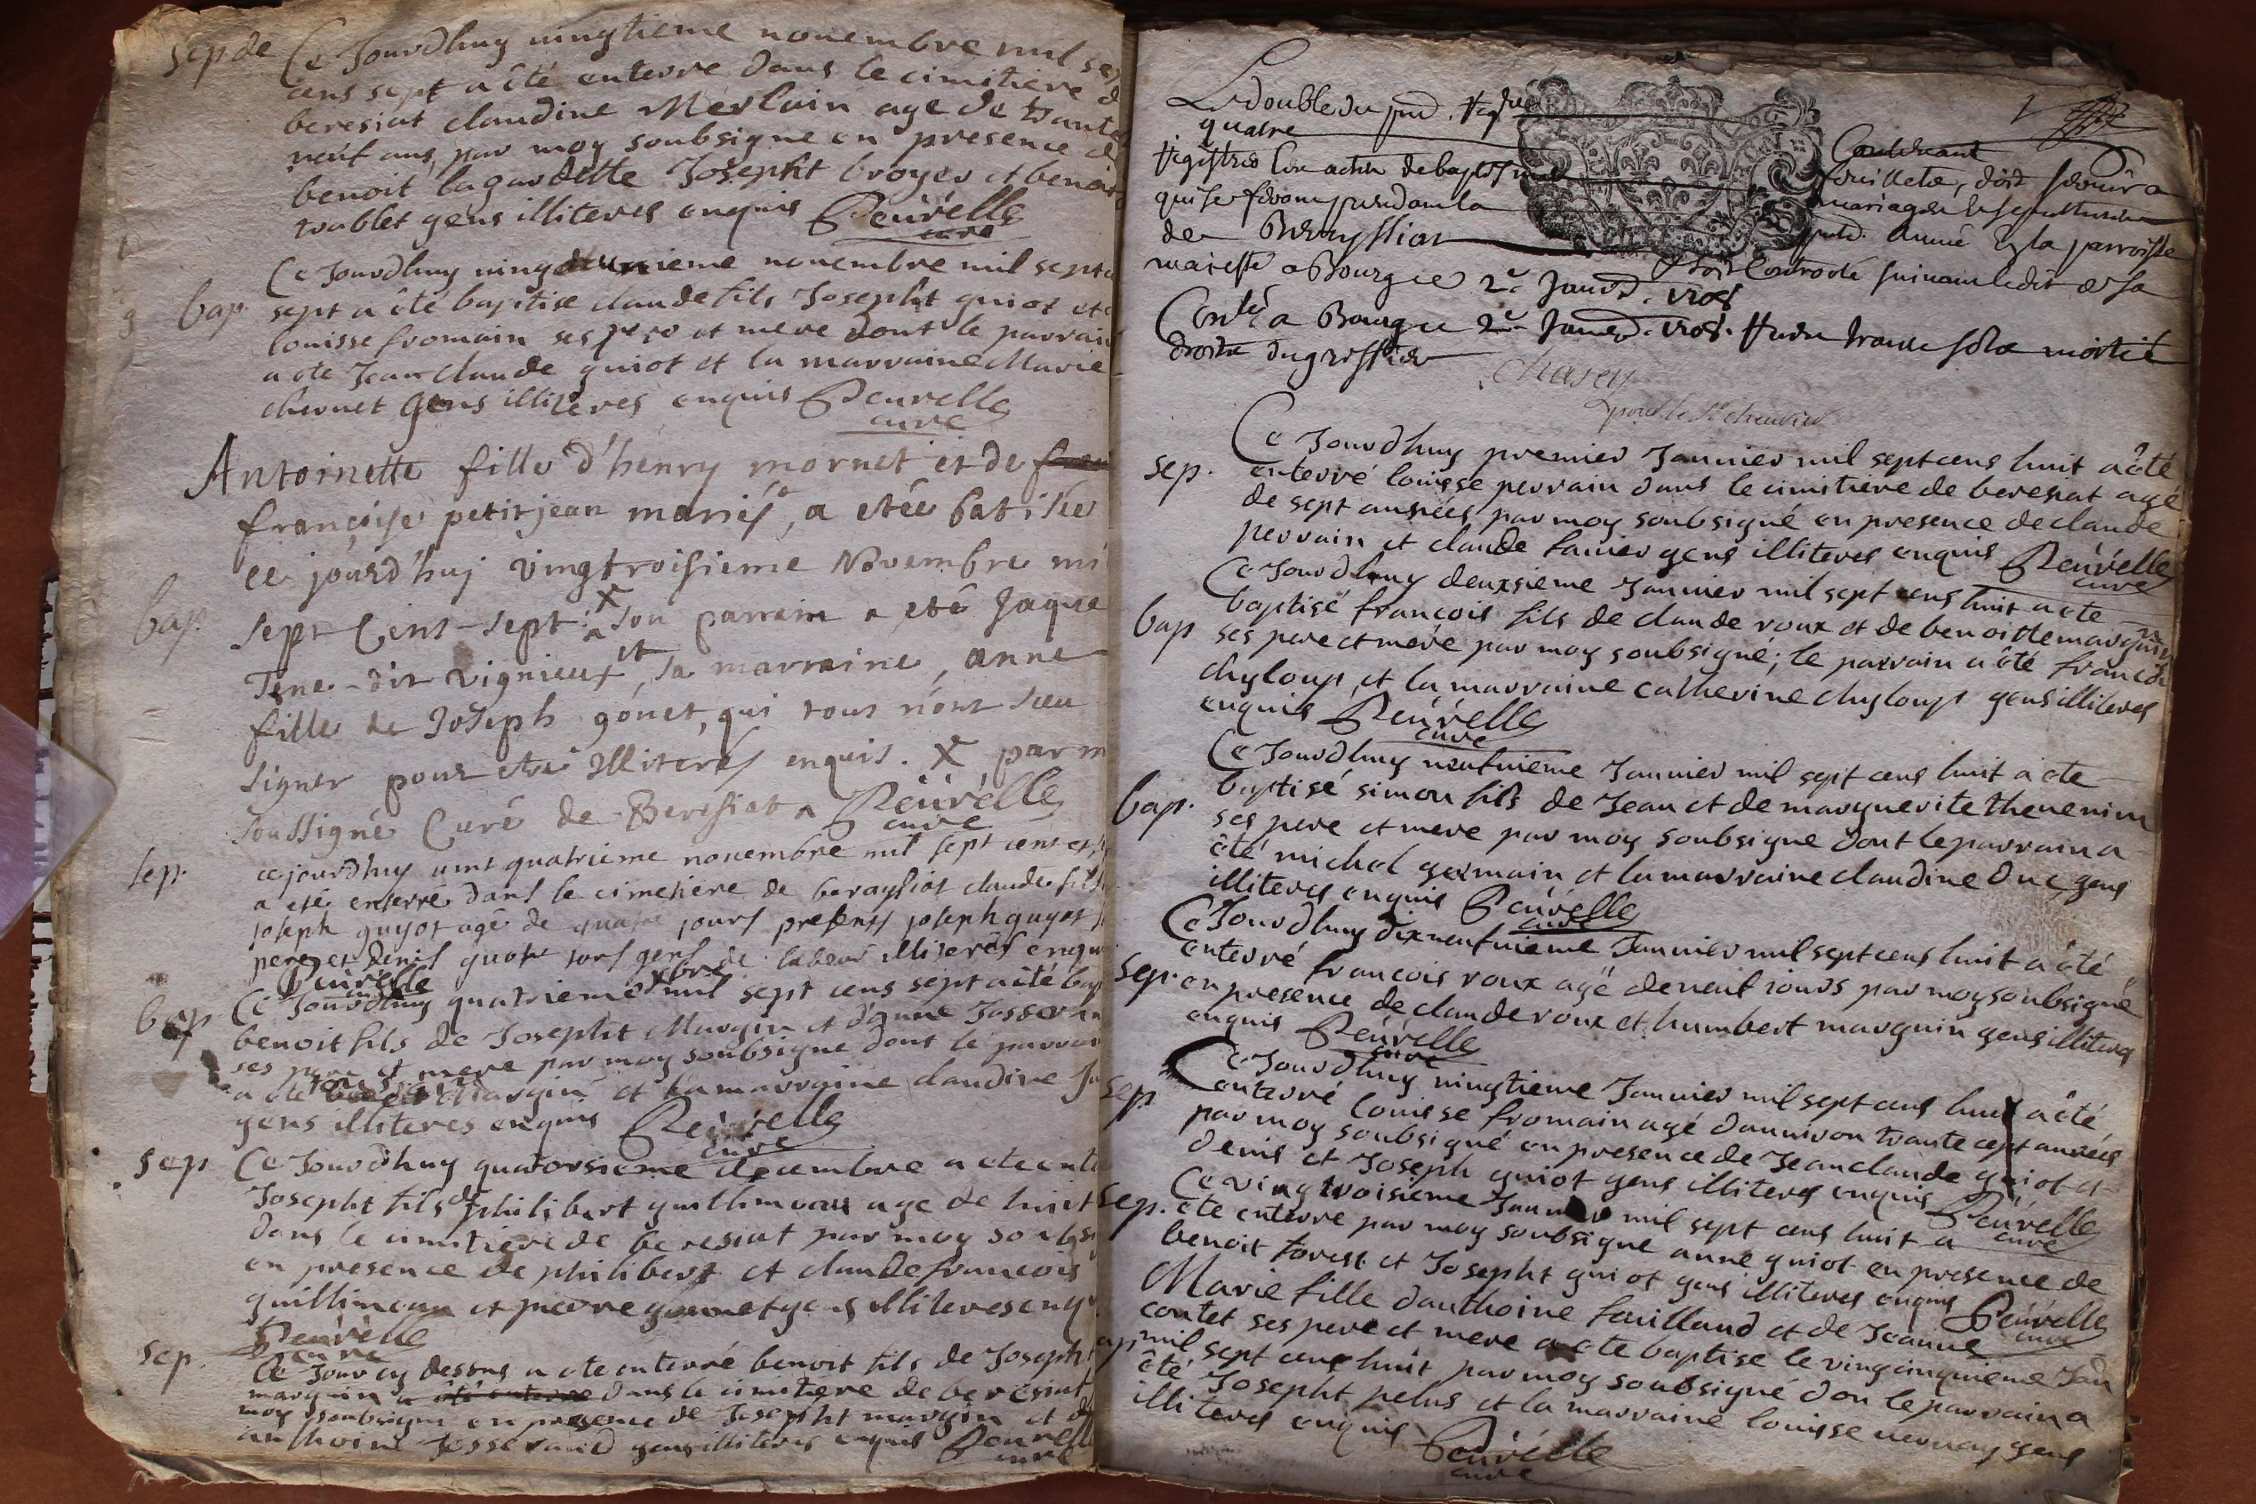 sep de Ce Jourdhuy vingtieme novembre mil sep
cens sept a êté enterre dans le cimitiere d
beresiat claudine Merlain age de
neuf ans, par moy soubsigne en presence de
benoit lagardette Josepht broyer et benoit
roublet gens illiteres enquis Peurelle
curé
Ce Jourdhuy vingt sieme novembre mil sept c
bap. sept a êté baptise claude fils Josepht guiot et
louisse fromain ses pere et mere dont le parrain
a ete Jean claude guiot et la marraine Marie
chernet gens illiteres enquis Peurelle
cure
Antoinette fille d'henry mornet et de
françoise petitjean mariés, a etée batisée
ce jourd'huj vingtroisieme Novembre mi
bap. sept Cens-sept. X son parrain a eté Jaque
Tene-dit vignieux et sa marraine, anne
fille de Joseph gonet, qui tous n'ont sceu
signer pour etre illiterés enquis. X par m
soussigné Curé de Beresiat Peurelle
cure
sep. cejourdhuy vint quatrieme novembre mil sept cent et
a eté enterré dans le cimetiere de beraysiat claude fils
joseph guyot agé de quatre jours presents joseph guyot
pere et denis guiot tous gens de labeur illiterés enqu
Peurelle
cure
bap Ce Jourdhuy quatrieme xbre mil sept cens sept a êté bap
benoit fils de Josepht Margin et d'anne Josseran
ses pere et mere par moy soubsigne dont le parrain
a ete Margin et la marraine claudine
gens illiteres enquis Peurelle
cure
sep Ce Jourdhuy quatorsieme decembre a ete ente
Josepht fils de philibert guillimeau age de huit
dans le cimitiere de beresiat par moy soubsi
en presence de philibert et claude francois
guillimeau et pierre gens illiteres enq
Peurelle
cure
sep. Ce Jour cy dessus a ete enterré benoit fils de Josepht
margin a été enterre dans le cimitiere de beresiat
moy soubsigne en presence de Josepht margin et d
anthoine Josserand gens illiteres enquis Peurelle
cure
Le double du pnt. Regre Contenant
quatre feuillets, doit servir a
registrer les actes de baptesmes mariages et sepultures
qui se feront pendant la pnte. année En la parroisse
de Berayssiat Et doit controlé suivant ledit de sa
majesté a Bourg ce 2e Janv. 1708
Conlé a Bourg ce 2e Janv. 1708. Recu trante sols moitié
droits du greffier
Chasey
pour le Sr chevrier
sep. Ce Jourdhuy premier Janvier mil sept cens huit a êté
enterré louisse perrain dans le cimitiere de beresiat agé
de sept années, par moy soubsigné en presence de claude
perrain et claude fanier gens illiteres enquis Peurelle
cure
Ce Jourdhuy deuxsieme Janvier mil sept cens huit a ete
bap baptisé françois fils de claude roux et de benoitte marguin
ses pere et mere par moy soubsigné; le parrain a êté francois
chyloup, et la marraine catherine chyloup gens illiteres
enquis Peurelle
cure
Ce Jourdhuy neufvieme Janvier mil sept cens huit a ete
bap. baptisé simon fils de Jean et de marguerite thevenin
ses pere et mere par moy soubsigne dont le parrain a
êté michel germain et la marraine claudine Duc, gens
illiteres enquis Peurelle
cure
Ce Jourdhuy dixneufvieme Janvier mil sept cens huit a êté
sep. enterré francois roux agé de neuf iours par moy soubsigné
en presence de claude roux et humbert marguin gens illiteres
enquis Peurelle
cure
sep Ce Jourdhuy vingtieme Janvier mil sept cens huit a êté
enterré louisse fromain agé danviron trante cept années
par moy soubsigné en presence de Jean claude guiot et
denis et Joseph guiot gens illiteres enquis Peurelle
cure
sep. Ce vingtroisieme Janvier mil sept cens huit a
ête enterre par moy soubsigne anne guiot en presence de
benoit forest et Josepht guiot gens illiteres enquis Peurelle
cure
Marie fille danthoine faillaud et de Jeanne
contet ses pere et mere a ete baptise le vingcinquieme Jan
bap mil sept cens huit par moy soubsigné don le parrain a
êté Josepht pelus et la marraine louisse vernay gens
illiteres enquis Peurelle
cure